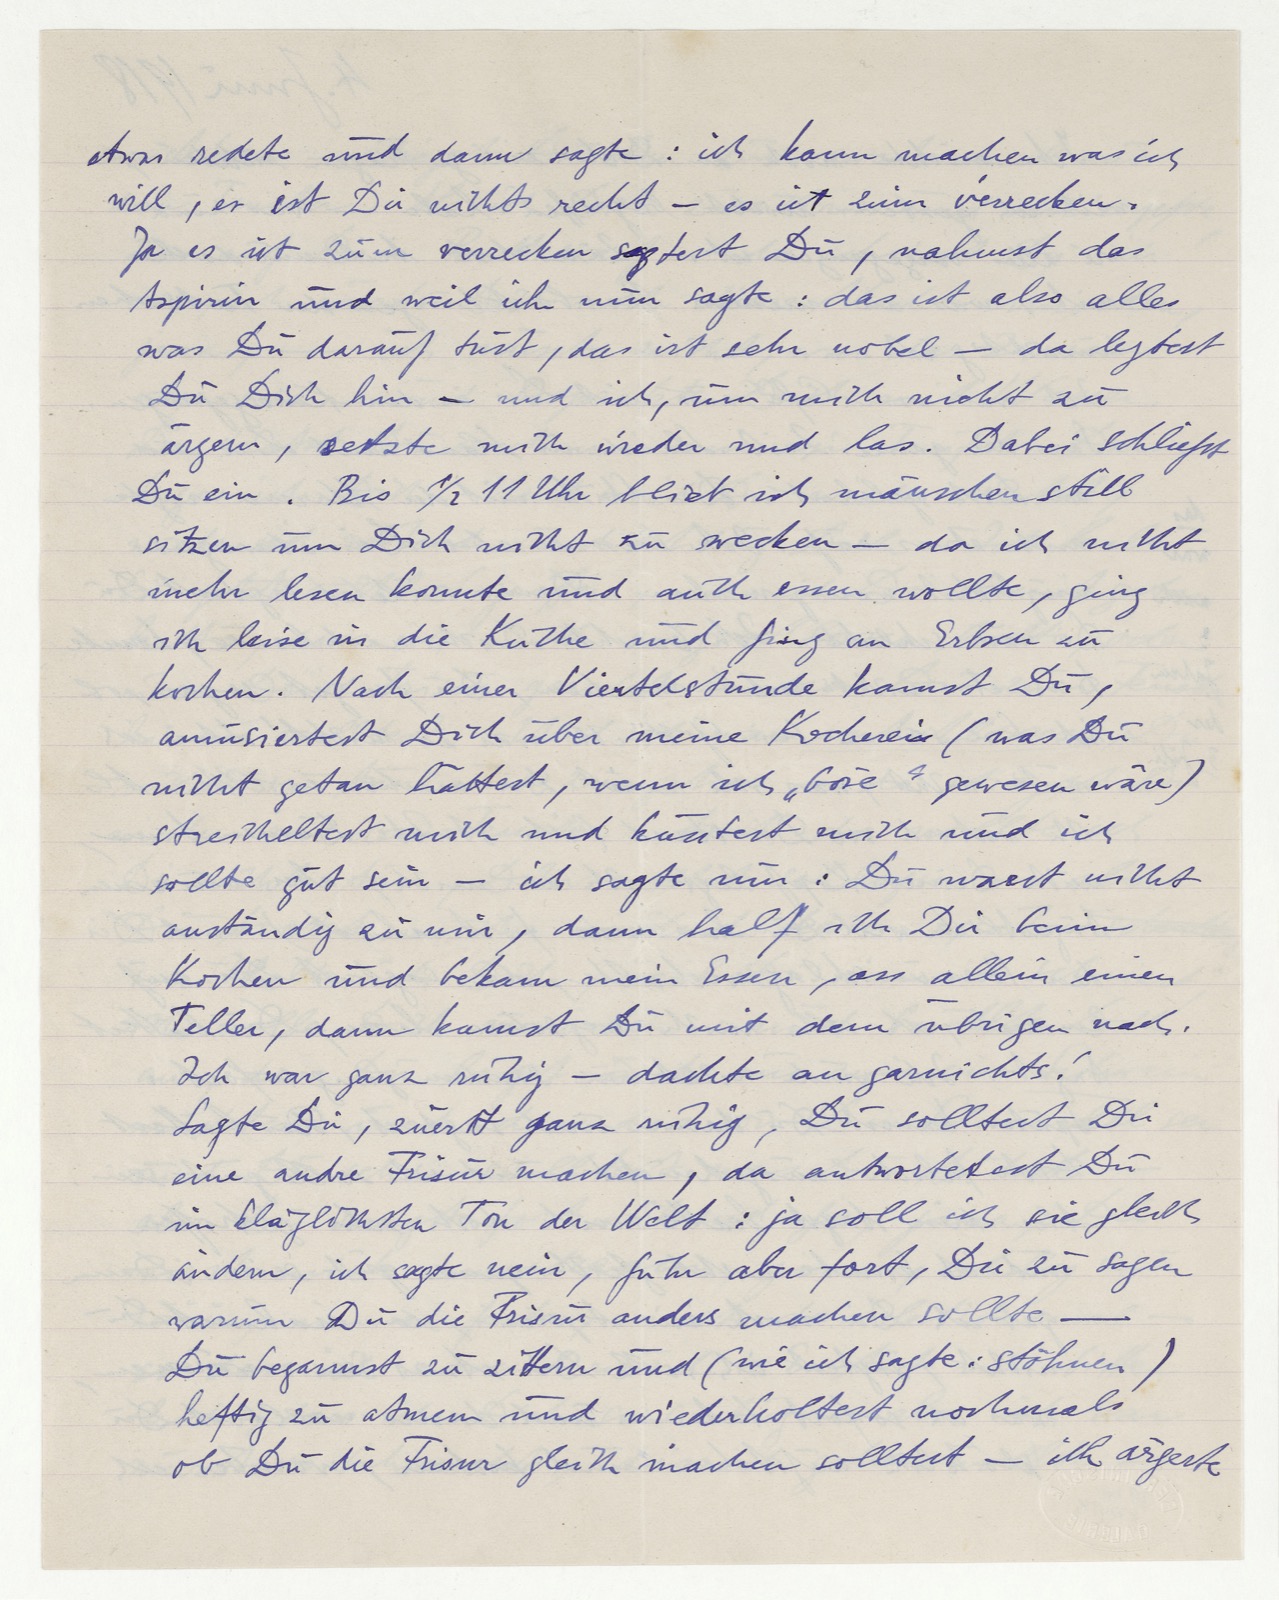 etwas redete und dann sagte : ich kann machen was ich
will , es ist Dir nichts recht – es ist zum verrecken.
Ja es ist zum verrecken sagtest Du , nahmst das
Aspirin und weil ich nun sagte : das ist also alles
was Du darauf tust , das ist sehr nobel — da legtest
Du Dich hin — und ich, um mich nicht zu
ärgern , setzte mich wieder und las. Dabei schliefst
Du ein . Bis 1/2 11 Uhr blieb ich mäuschen still
sitzen um Dich nicht zu wecken — da ich nicht
mehr lesen konnte und auch essen wollte , ging
ich leise in die Küche und fing an Erbsen zu
kochen. Nach einer Viertelstunde kamst Du ,
amüsiertest Dich über meine Kocherei ( was Du
nicht getan hättest , wenn ich „böse“ gewesen wäre )
streicheltest mich und küsstest mich und ich
sollte gut sein — ich sagte nur : Du warst nicht
anständig zu mir , dann half ich Dir beim
Kochen und bekam mein Essen , ass allein einen
Teller , dann kamst Du mit dem übrigen nach.
Ich war ganz ruhig — dachte an garnichts !
Sagte Dir , zuerst ganz ruhig , Du solltest Dir
eine andre Frisur machen , da antwortetest Du
im kläglichsten Ton der Welt : ja soll ich sie gleich
ändern , ich sagte nein , fuhr aber fort , Dir zu sagen
warum Du die Frisur anders machen sollte —
Du begannst zu zittern und ( wie ich sagte : stöhnen )
heftig zu atmen und wiederholtest nochmals
ob Du die Frisur gleich machen solltest — ich ärgerte